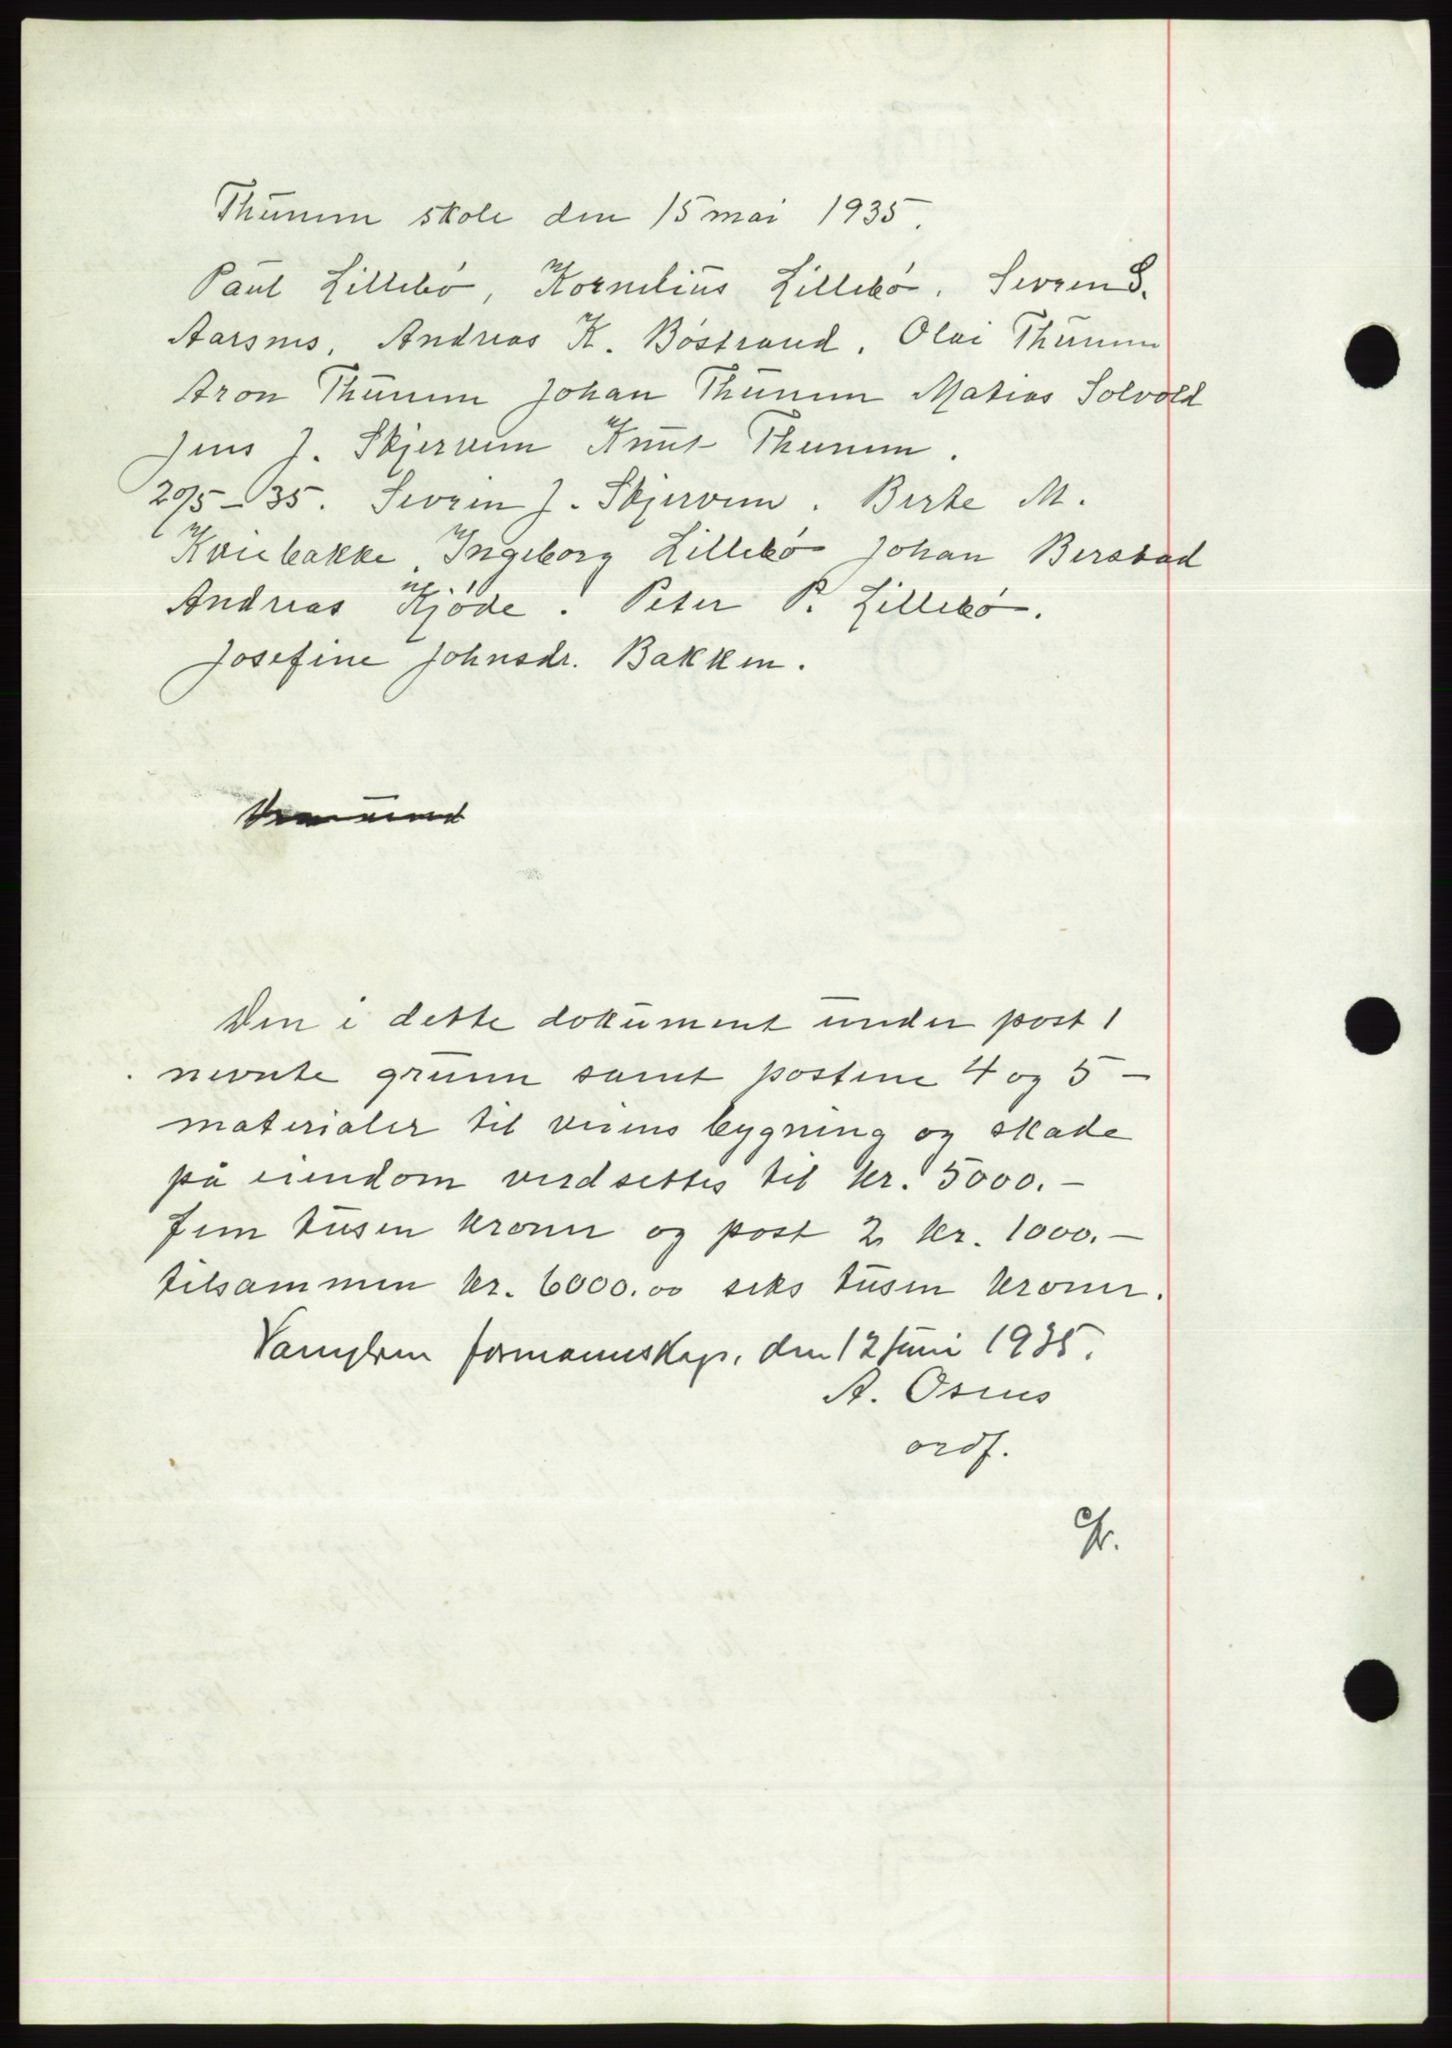 Thunem skole den 15 mai 1935.
Paul Lillebö, Kornelius Lillebö. Sevrin S.
Aarsnes, Andreas K. Böstrand. Olai Thunem
Aron Thunem Johan Thunem Matias Solvold
Jens J. Skjervem Knut Thunem.
20/5-35. Sevrin J. Skjervem. Berte M.
Kviebakke, Ingeborg Lillebö Johan Berstad
Andreas Kjöde. Peter P. Lillebö.
Josefine Johnsdr. Bakken.
Den i dette dokument under post 1
nevnte grunn samt postene 4 og 5 -
materialer til veiens bygning og skade
på eiendom verdsettes til kr. 5000.-
fem tusen kroner og post 2 kr. 1000.-
tilsammen kr. 6000.00 seks tusen kroner.
Vanylven formannskap, den 12 juni 1935.
A. Osnes
ordf.